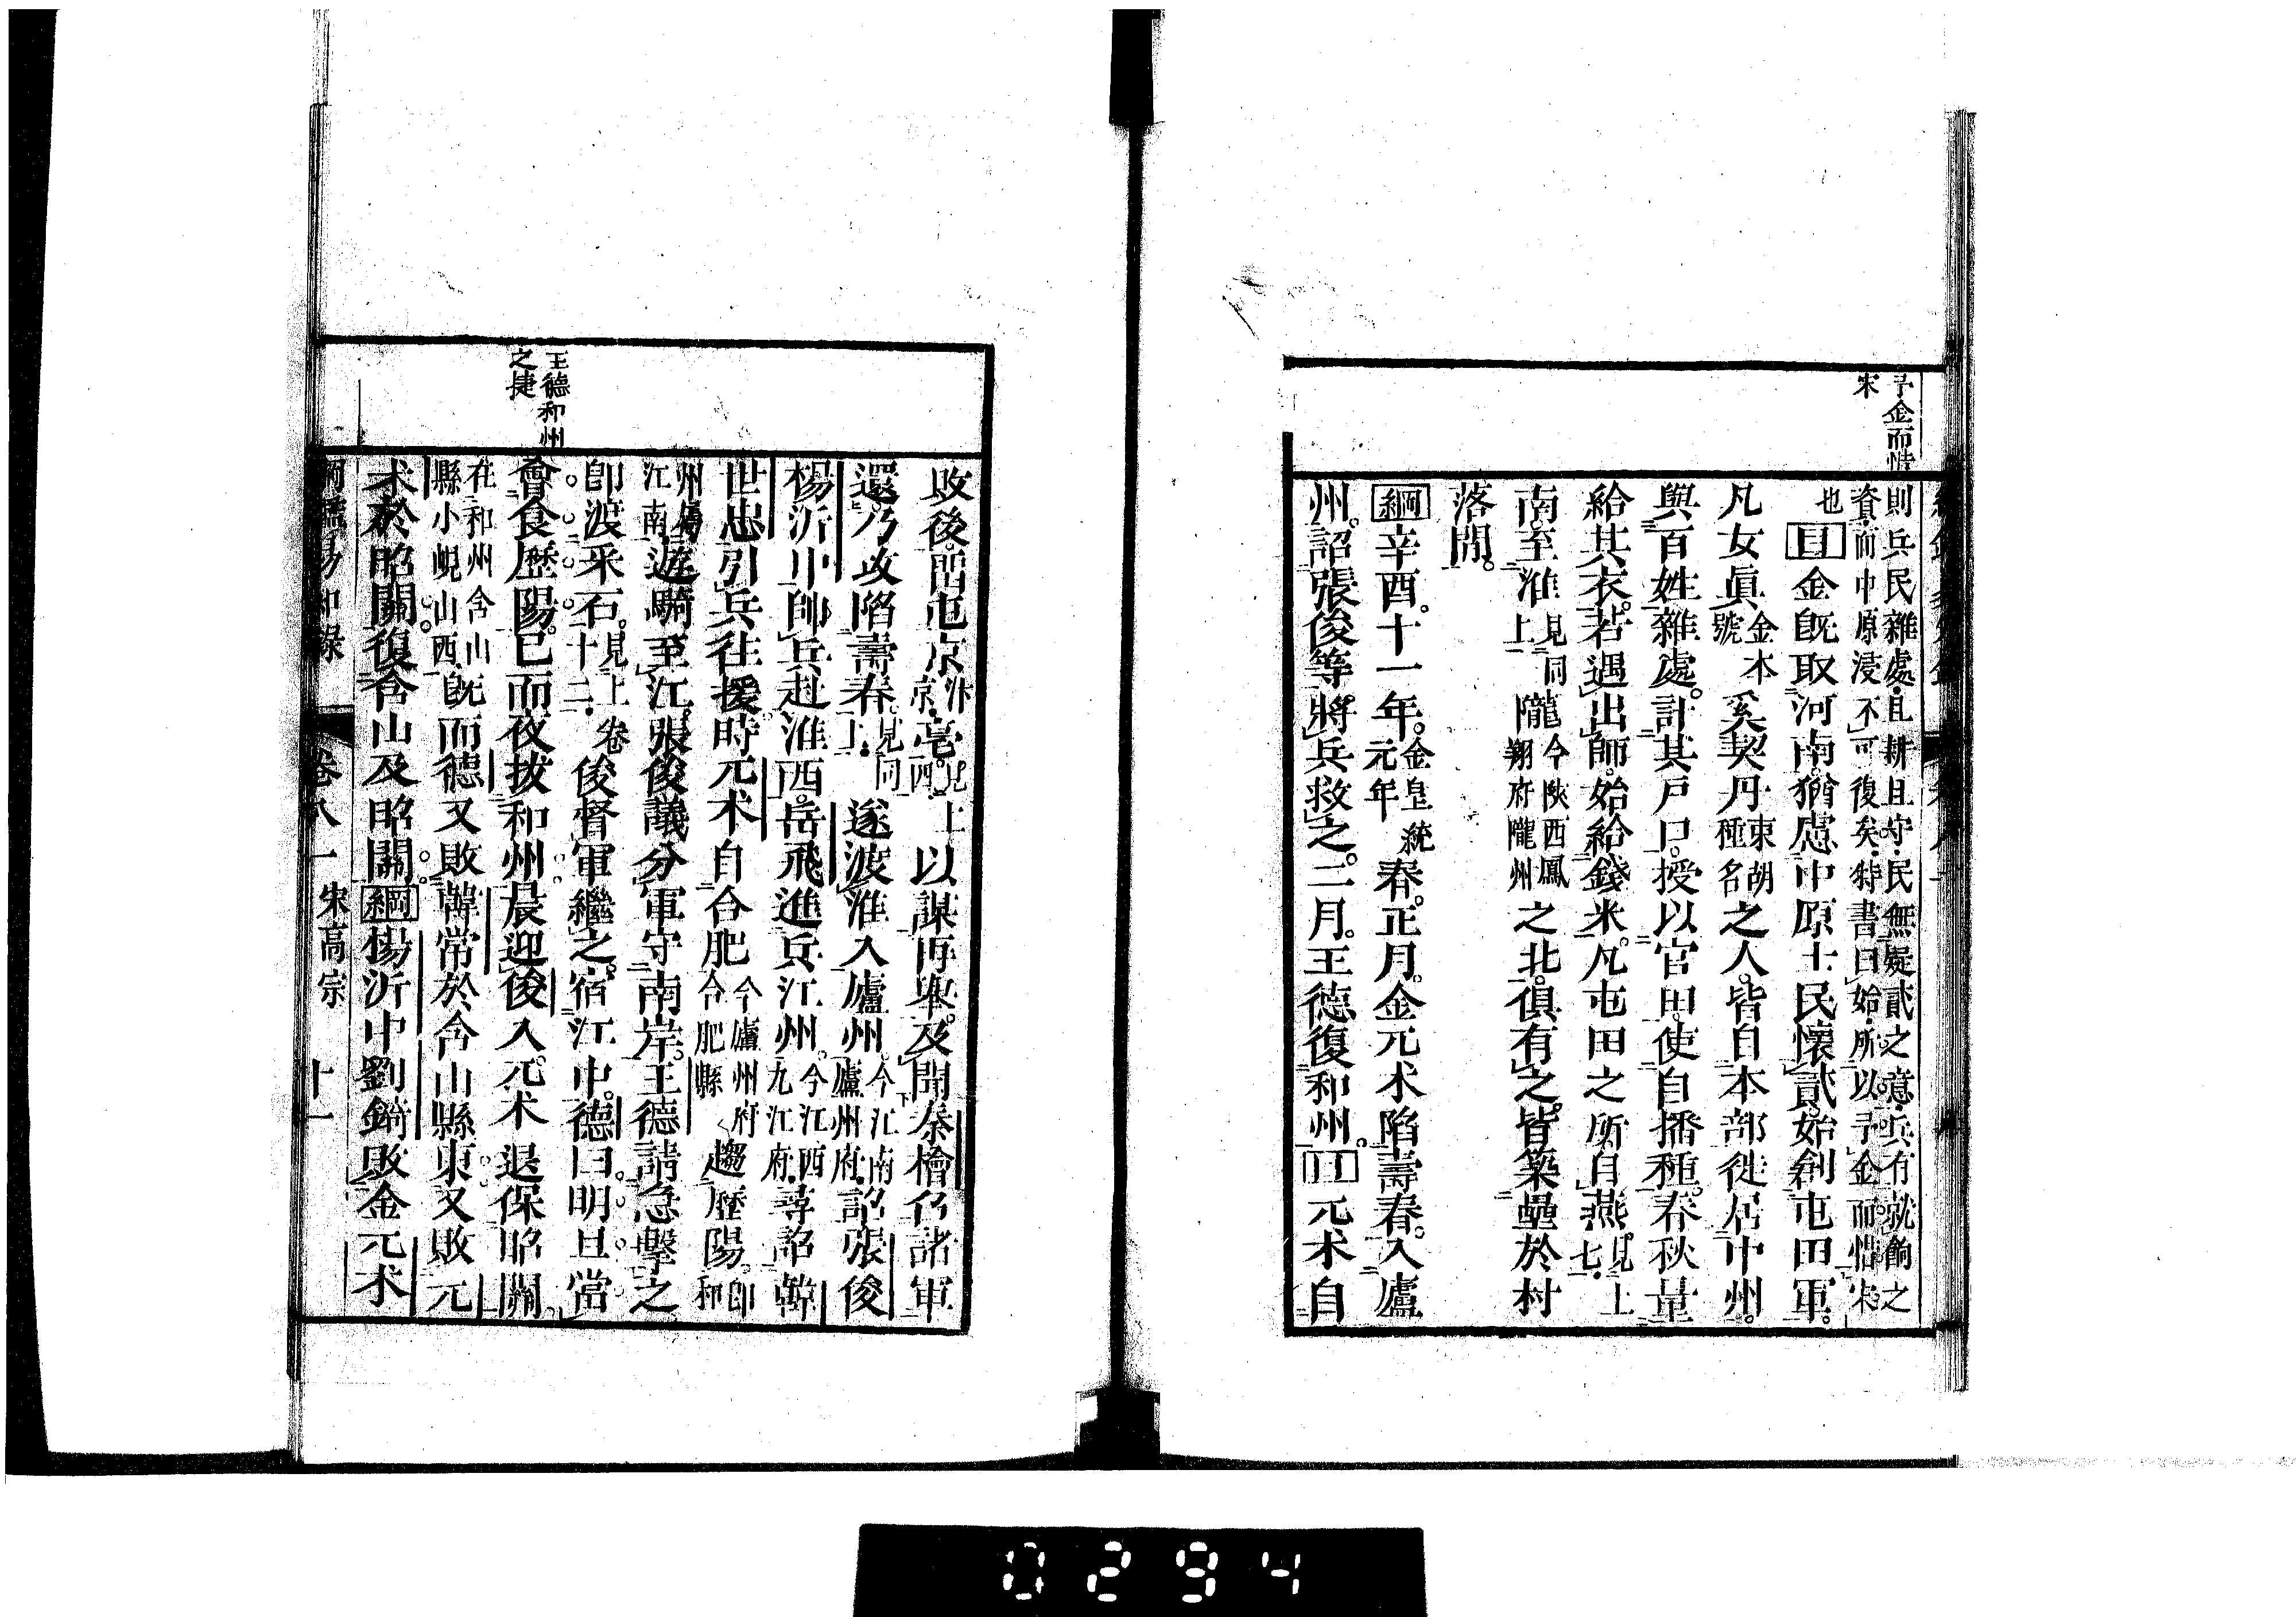 予金而惜
宋
則兵民雜處且耕且守民無疑貳之意兵有就餉之
資而中原浸不可復矣特書曰始所以予金而惜宋
也目金既取河南猶慮中原士民懷貳始創屯田軍。
凡女眞金本號奚契丹東胡種名之人。皆自本部徙居中州。
與百姓雜處。計其戶口。授以官田。使自播種。春秋量
給其衣。若遇出師。始給錢米。凡屯田之所。自燕見上七。
南至淮見同上隴今陝西鳳翔府隴州之北。俱有之。皆築壘於村
落間。
綱辛酉。十一年。金皇統元年春。正月。金元朮陷壽春。入廬
州。詔張俊等。將兵救之。二月。王德復和州。目元朮自
敗後。西屯京汴京亳見同上以謀再舉。及聞秦檜召諸軍
還。乃攻陷壽春。見上遂渡淮入廬州。今江南廬州府詔張俊
楊沂中帥兵赴淮西。岳飛進兵江州。今江西九江府尋詔韓
世忠引兵往援。時元朮自合肥今廬州府合肥縣趨歷陽。即和
州屬江南遊騎至江。張俊議分軍守南岸。王德請急擊之
即渡采石。見上卷十二。俊督軍繼之。宿江中。德曰。明旦當
會食歷陽。已而夜拔和州。晨迎俊入。元朮退保昭關。
在和州含山縣小峴山西既而德又敗韓常於含山縣東。又敗元
朮於昭關。復含山及昭關。綱楊沂中劉錡敗金元朮
王德和州
之捷
綱鑑易知錄 卷八一 宋高宗 十一
0294